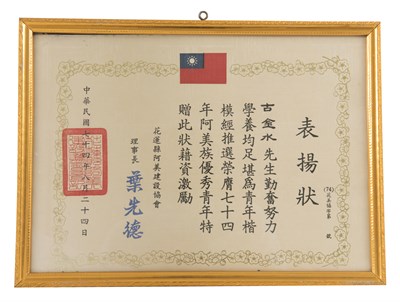 表揚狀
(74)
號
古金水先生勤奮努力
學養均足堪為青年楷
模經推選榮膺七十四
年阿美族優秀青年特
贈此狀藉資激勵
花蓮縣阿美建設協會
理事長 葉先德
中華民國七十四年八月二十四日